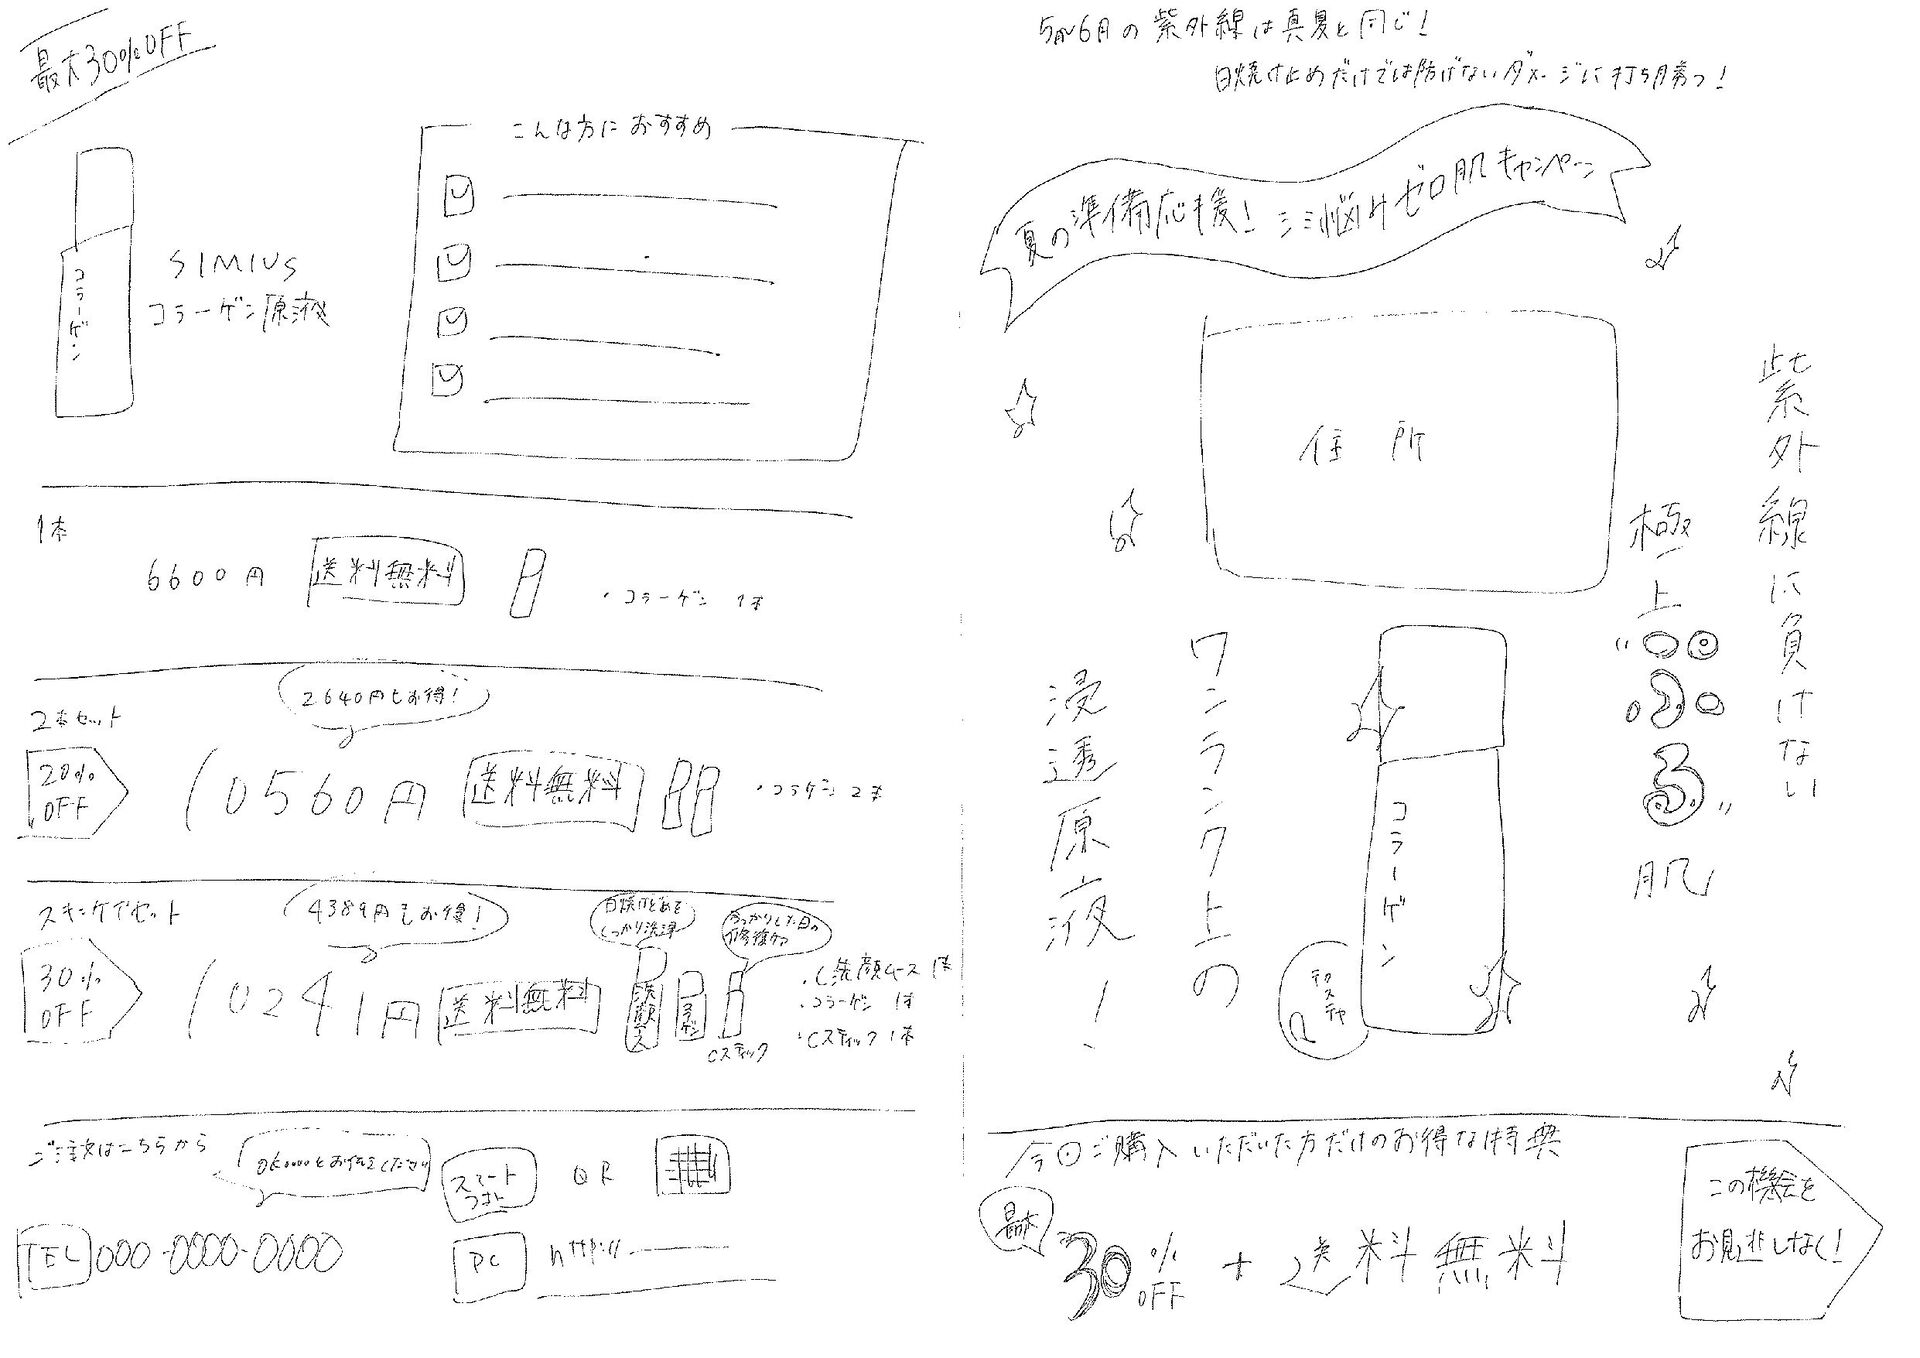 最大30%OFF
コラーゲン
SIMIUS
コラーゲン原液
こんな方におすすめ
1本
6600円
送料無料
・コラーゲン 1本
2本セット
2640円もお得!
20%
OFF
10560円
送料無料
・コラーゲン 2本
スキンケアセット
4389円もお得!
日焼け止めを
しっかり洗浄
うっかりした日の
修復ケア
30%
OFF
10241円
送料無料
洗顔ムース
コラーゲン
Cスティック
・C洗顔ムース 1本
・コラーゲン 1本
・Cスティック 1本
ご注文はこちらから
とお伝えください
スマート
フォン
QR
TEL 000-0000-0000
PC
http://
5月6月の紫外線は真夏と同じ!
日焼け止めだけでは防げないダメージに打ち勝つ!
夏の準備応援!シミ悩みゼロ肌キャンペーン
住所
紫外線に負けない
極上
"○◎
○●○
る"
肌
コラーゲン
テクスチャ
ワンランク上の
浸透原液!
今回ご購入いただいた方だけのお得な特典
最大
30%
OFF
+
送料無料
この機会を
お見逃しなく!